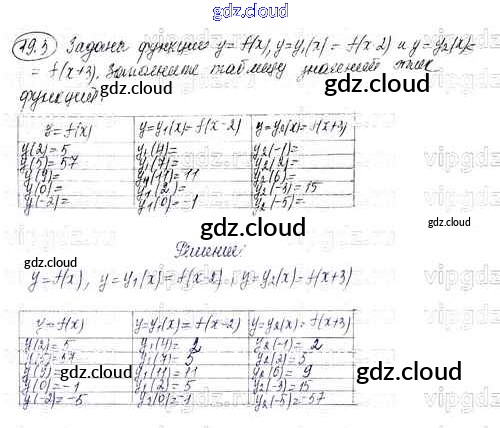 gdz.cologne
19.3 Заданы функции y = f(x), y = y₁(x) = f(x-2) и y = y₂(x) =
= f(x+3). Заполните таблицу значений этих
функций:
gdz.cologne
y = f(x) y = y₁(x) = f(x-2) y = y₂(x) = f(x+3)
y(2) = 5 y₁(4) = y₂(-1) =
y(5) = 57 y₁(7) = y₂(2) =
y(9) = y₁(11) = 11 y₂(6) =
y(0) = y₁(2) = y₂(-3) = 15
y(-2) = y₁(0) = -1 y₂(-5) =
gdz.cologne
Решение:
y = f(x), y = y₁(x) = f(x-2), y = y₂(x) = f(x+3)
y = f(x) y = y₁(x) = f(x-2) y = y₂(x) = f(x+3)
y(2) = 5 y₁(4) = 2 y₂(-1) = 2
y(5) = 57 y₁(7) = 5 y₂(2) = 5
y₁(11) = 11 y₂(6) = 9
y(0) = -1 y₁(2) = 5 y₂(-3) = 15
y(-2) = -5 y₁(0) = -1 y₂(-5) = -57
gdz.cologne